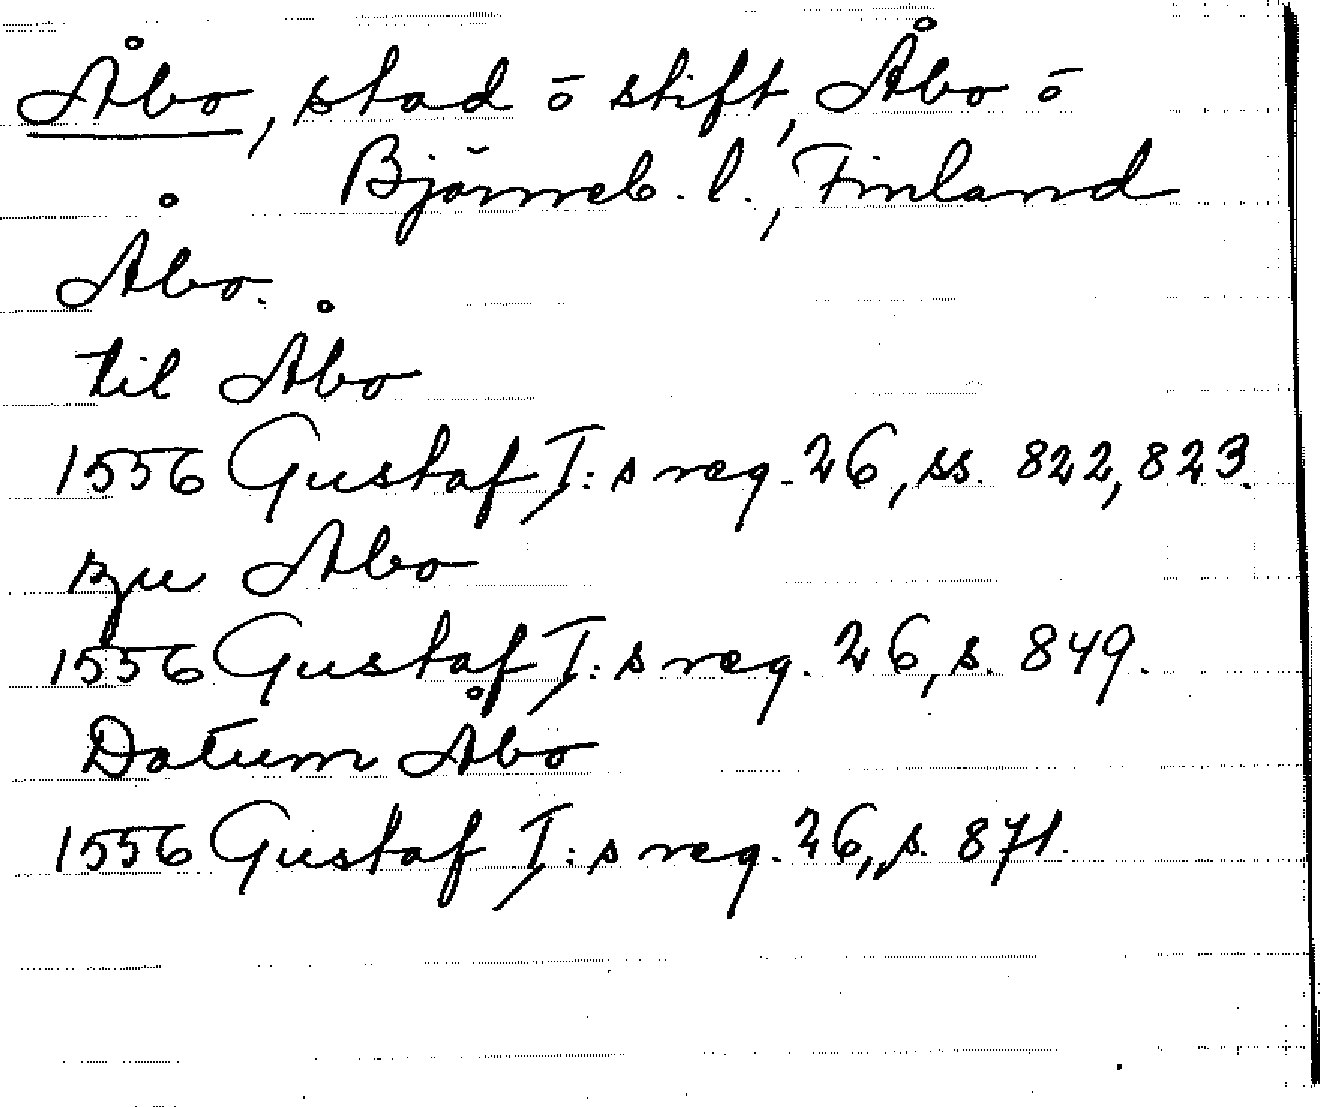 Åbo, stad ō stift, Åbo ō
Björneb. l., Finland
Åbo.
til Åbo
1556 Gustaf I:s reg. 26, ss. 822, 823.
Åbo
1556 Gustaf I:s reg. 26, s. 849.
Datum Åbo
1556 Gustaf I:s reg. 26, s. 871.